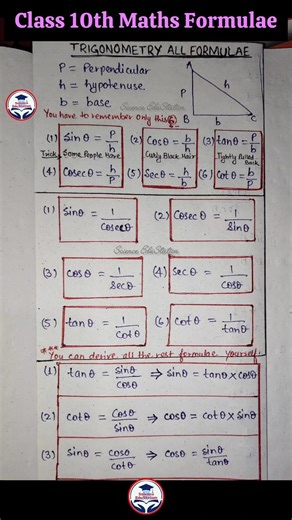 Class 10th Maths Formulae
TRIGONOMETRY ALL FORMULAE
P = Perpendicular
h = hypotenuse
b = base
A
P
h
B
b
C
Science EduStation
You have to remember only this
(1) Sinθ = P/h (2) Cosθ = b/h (3) tanθ = P/b
Trick: Some People Have Curly Black Hair Tightly Pulled Back
(4) Cosecθ = h/P (5) Secθ = h/b (6) Cotθ = b/P
(1) Sinθ = 1/cosecθ (2) Cosecθ = 1/Sinθ
Science EduStation
(3) Cosθ = 1/secθ (4) Secθ = 1/cosθ
(5) tanθ = 1/Cotθ (6) Cotθ = 1/tanθ
*You can derive all the rest formulae yourself.
(1) tanθ = sinθ/cosθ ⇒ sinθ = tanθ×cosθ
(2) cotθ = cosθ/sinθ ⇒ cosθ = cotθ×sinθ
(3) Sinθ = cosθ/cotθ ⇒ cosθ = sinθ/tanθ